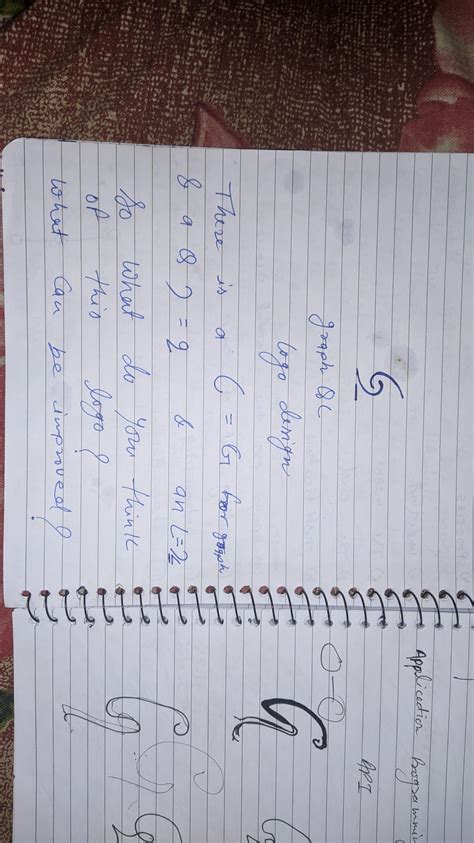 G
graph QL
logo design
There is a G = G for graph
& a Q) = q & an L = 2
So what do you think
of this logo?
what can be improved?
Application Programming
API
G